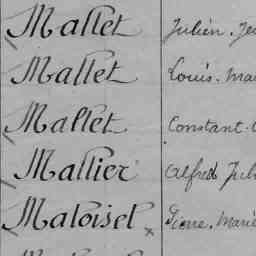 Mallet Julien. Je
Mallet Louis. Ma
Mallet Constant.
Mallier Alfred Jul
Maloisel Pierre. Marie